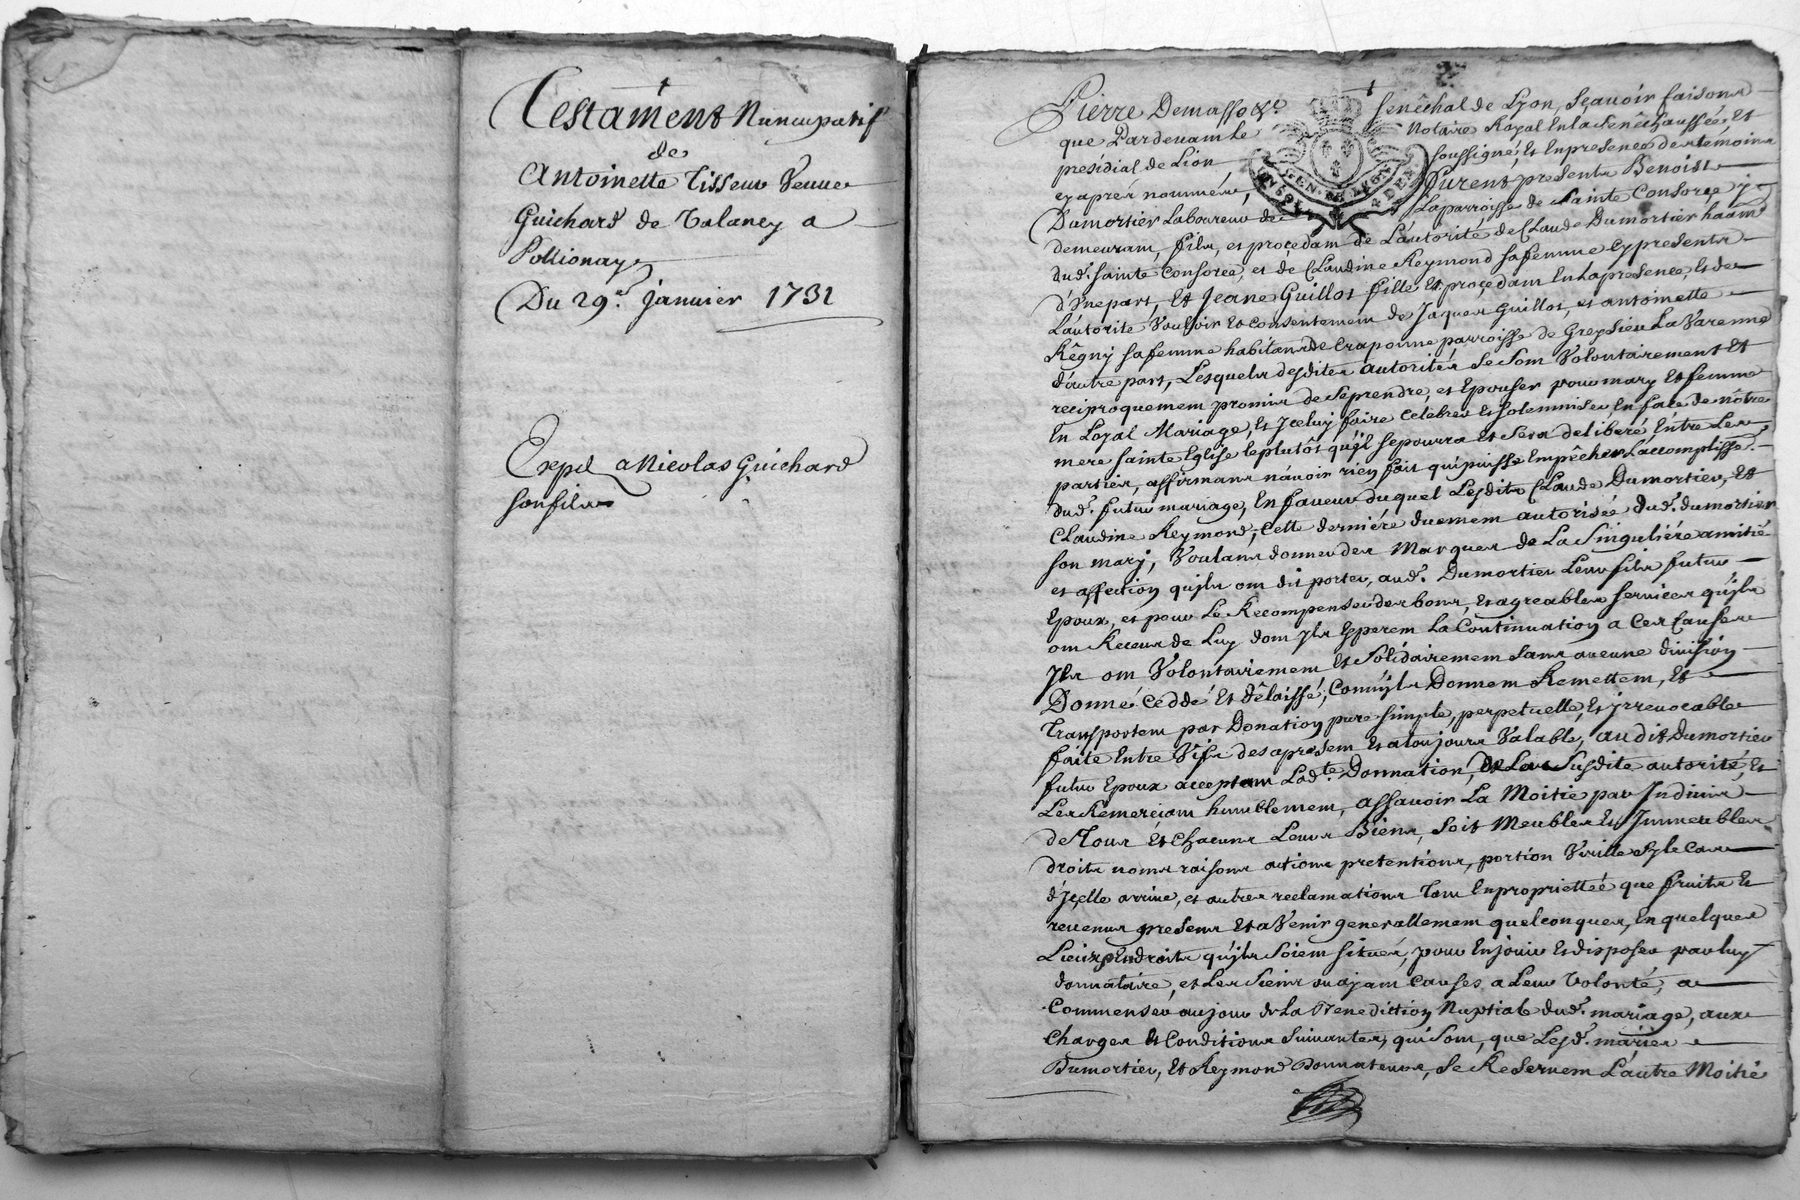 Testament Nuncupatif
de
Antoinette Tisseur Veuve
Guichard de Valancy a
Pollionay
Du 29e. Janvier 1731
Exped a Nicolas Guichard
son fils
Pierre Demasso &c. senêchal de Lyon, Scavoir faisons
que Pardevant Le Notaire Royal En la Senêchaussée, Et
presidial de Lion soussigné, Et En presence des témoins
cy aprés nommés, furent presents Benoist
Dumortier Laboureur de La parroisse de Sainte Consorce y
demeurant, fils, et procedant de L'autorité de Claude Dumortier habitant
dud. Sainte Consorce, et de Claudine Reymond sa femme cy presents
d'Vne part, Et Jeane Guillot fille Et procedant En la presence, Et de
L'autorité Vouloir Et consentement de Jaques Guillot, et antoinette
Rêgny sa femme habitans de Craponne parroisse de Greysieu La Varenne
d'autre part, Lesquels desdites autorités Se Sont Volontairement Et
reciproquement promis de Se prendre, et Epouser pour mary Et femme
En Loyal Mariage, Et Jceluy faire Celebrer Et Solemniser En face de nôtre
mere Sainte Eglise le plutôt qu'il se pourra Et Sera deliberé Entre Les
parties, affirmans n'avoir rien fait qui puisse Empêcher L'accomplisse.
dud. futur mariage, En faveur duquel Lesdits Claude Dumortier, Et
Claudine Reymond, Cette derniére duement autorisée dud. dumortier
son mary, Voulans donner des Marques de La Singuliére amitié
et affection qu'jls ont dit porter, aud. Dumortier Leur fils futur
Epoux, et pour Le Recompenser des bons, Et agreables services qu'jls
ont Receus de Luy dont Jls Esperent La Continuation a Ces Causes
Jls ont Volontairement Et Solidairement Sans aucune division
Donné Ceddé Et Délaissé, Comm'jls Donnent Remettent, Et
Transportent par Donation pure simple, perpetuelle, Et jrrevocable
faite Entre Vifs des a present Et a toujours Valable, au dit Dumortier
futur Epoux acceptant Lad.te Donnation, De La Susdite autorité, Et
Les Remerciant humblement, assavoir La Moitié par Indivis
de Tous Et Chacuns Leurs Biens, Soit Meubles Et Immeubles
droits noms raisons actions pretentions, portion Virille Sy le Cas
d'Jcelle arrive, et autres reclamations Tant En proprietteé que fruits Et
revenus presens Et a Venir generallement quelconques, En quelques
Lieux Endroits qu'jls Soient situés, pour En jouir Et disposer par luy
donnataire, et Les Siens ou ayant Causes a Leur Volonté, a
Commenser au jour de La Benediction Nuptiale dud. mariage, aux
Charges Et Conditions Suivantes, qui Sont, que Lesd. mariés
Dumortier, Et Reymond Donnateurs, Se Reservent L'autre Moitié